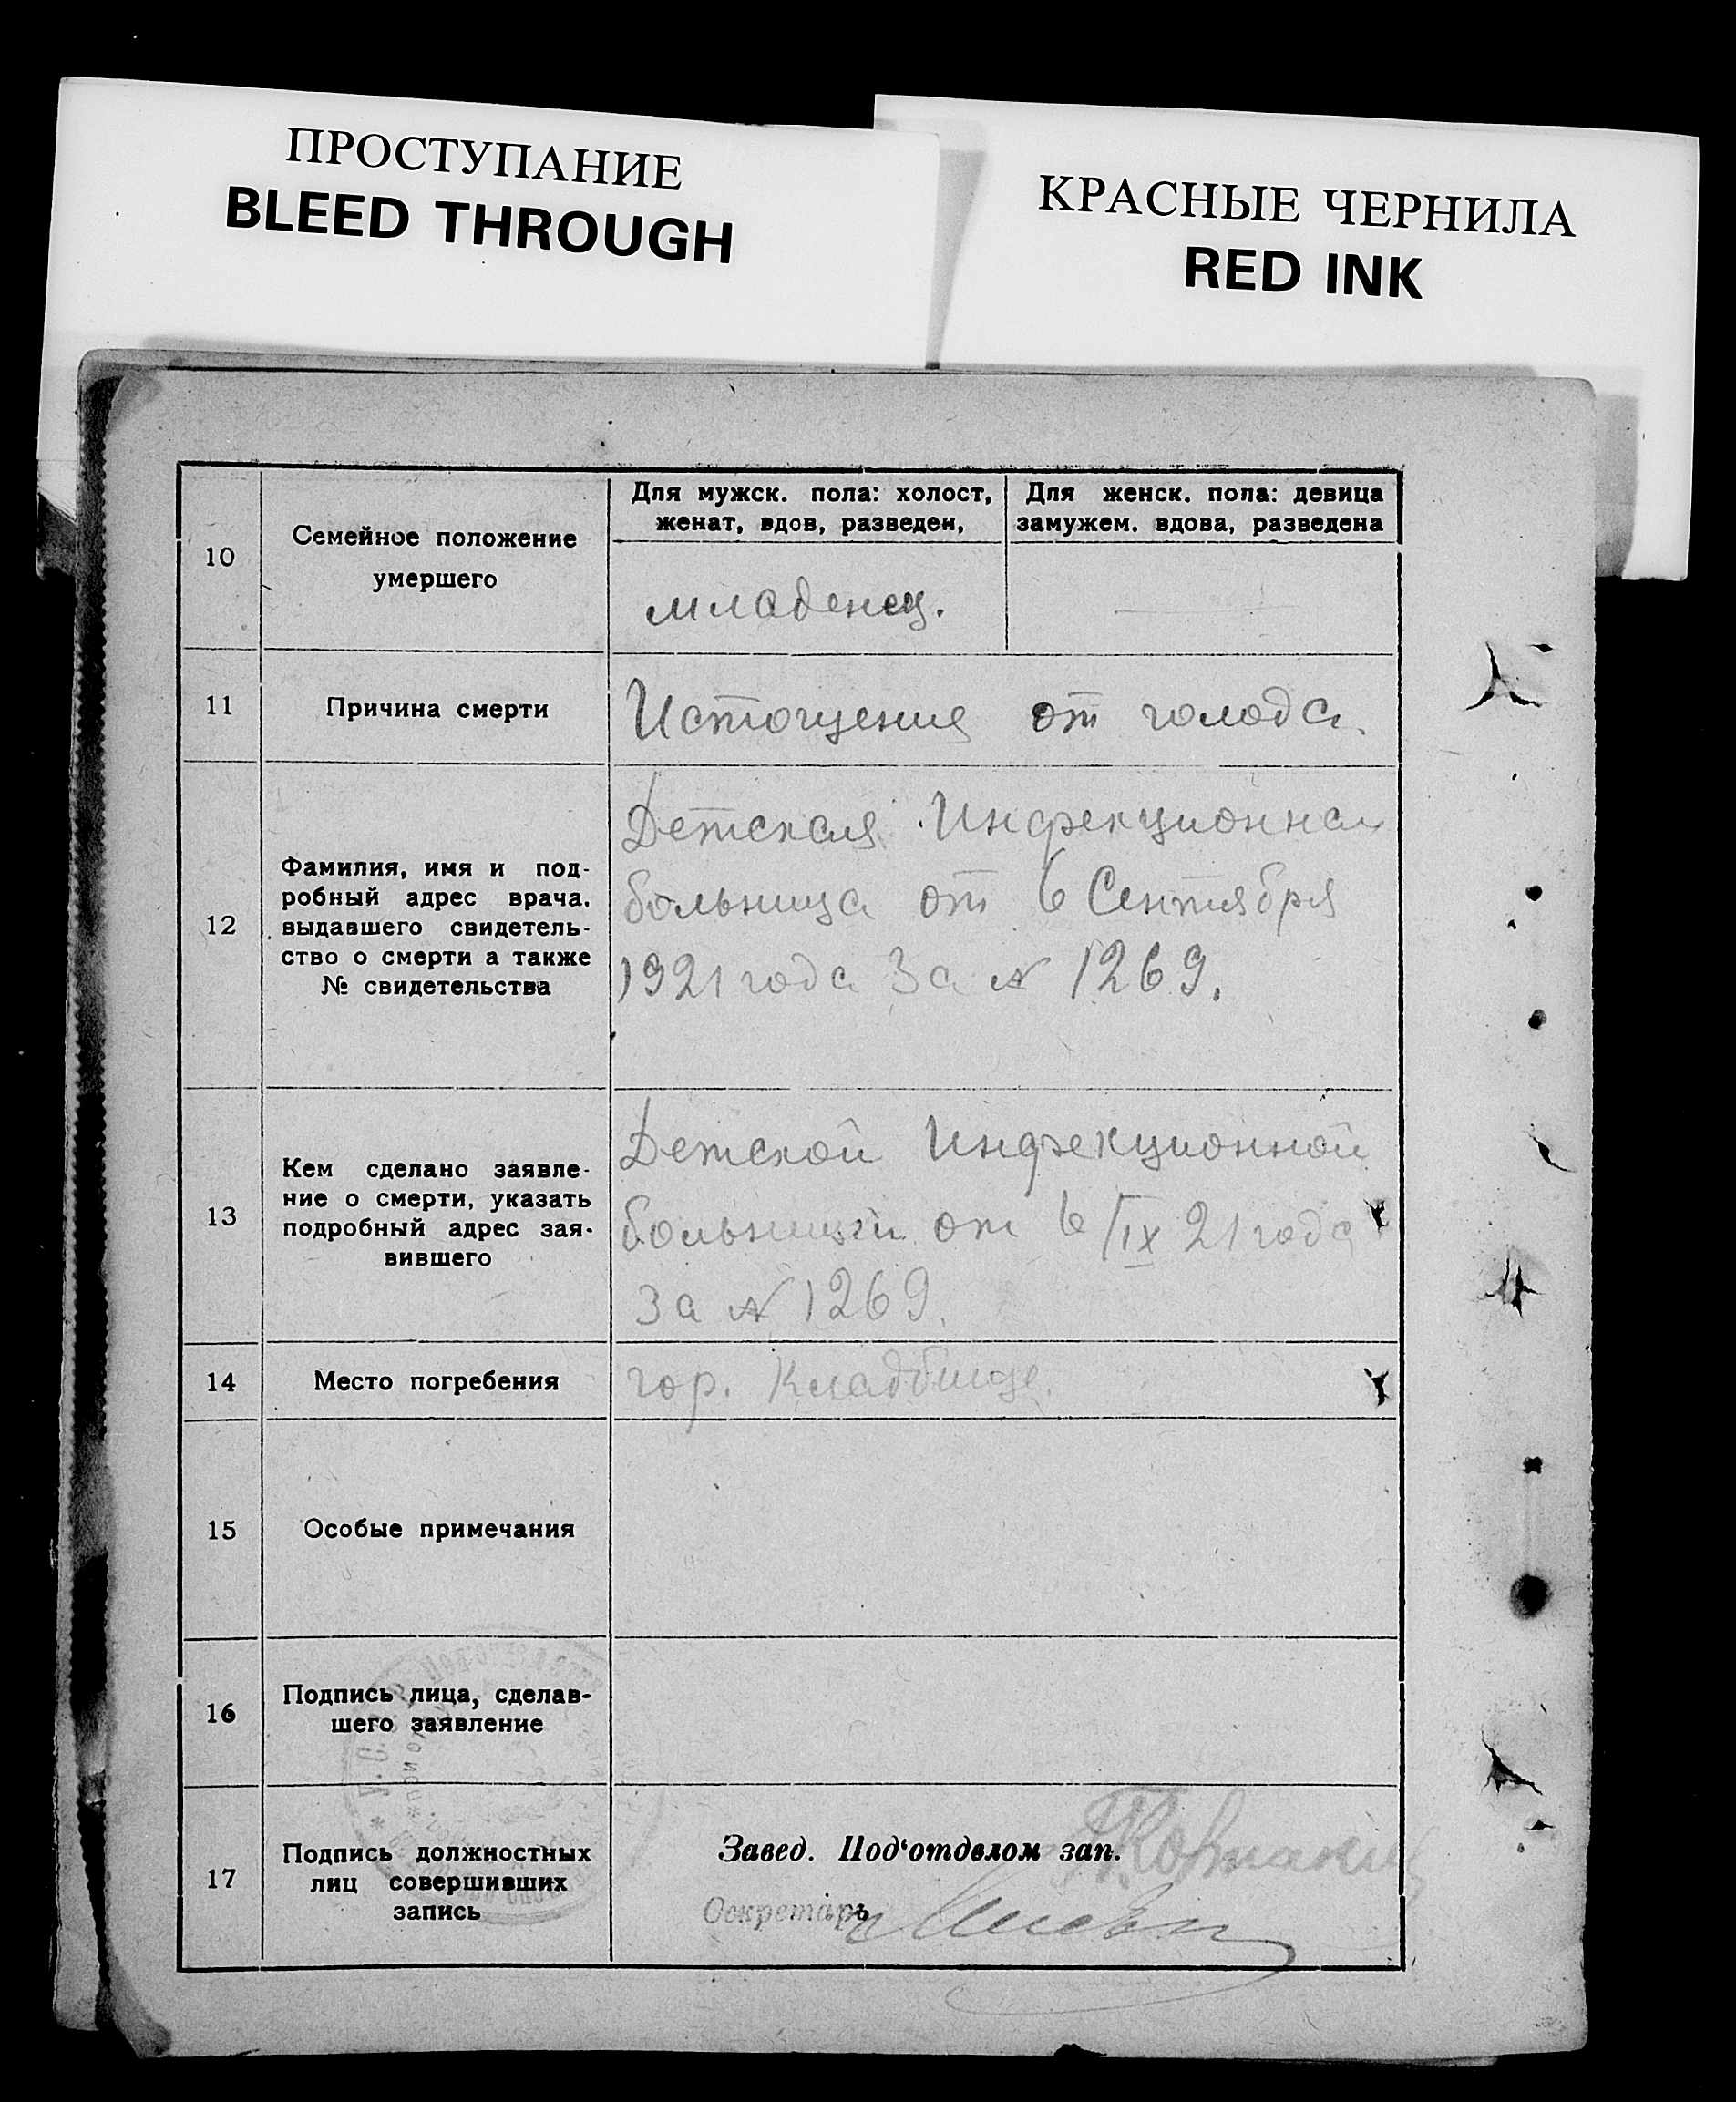 ПРОСТУПАНИЕ
BLEED THROUGH
КРАСНЫЕ ЧЕРНИЛА
RED INK
10
Семейное положение
умершего
Для мужск. пола: холост,
женат, вдов, разведен,
Для женск. пола: девица
замужем. вдова, разведена
младенец.
11
Причина смерти
Истощения от голода.
12
Фамилия, имя и под-
робный адрес врача.
выдавшего свидетель-
ство о смерти а также
№ свидетельства
Детская Инфекционная
больница от 6 Сентября
1921 года За № 1269.
13
Кем сделано заявле-
ние о смерти, указать
подробный адрес зая-
вившего
Детской Инфекционной
больницей от 6/IX 21 года
За № 1269.
14
Место погребения
гор. Кладбище.
15
Особые примечания
16
Подпись лица, сделав-
шего заявление
17
Подпись должностных
лиц совершивших
запись
Завед. Под‘отделом зап.
Секретарь